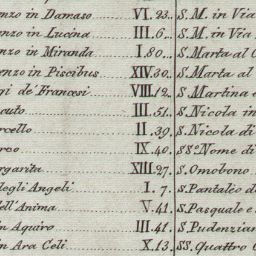 nzo in Damaso VI. 23. S. M. in Via
nzo in Lucina III. 6. S. M. in Via
nzo in Miranda I. 80. S. Marta al
enzo in Piscibus XIV. 30. S. Marta al
gi de' Francesi VIII. 12. S. Martina e
cuto III. 51. S. Nicola in
rcello II. 39. S. Nicola di
rco IX. 40. SS.º Nome di
rgarita XIII. 27. S. Omobono
degli Angeli I. 7. S. Pantaleo d
ell'Anima V. 41. S. Pasquale e
n Aquiro III. 41. S. Pudenzian
n Ara Celi X. 13. SS. Quattro